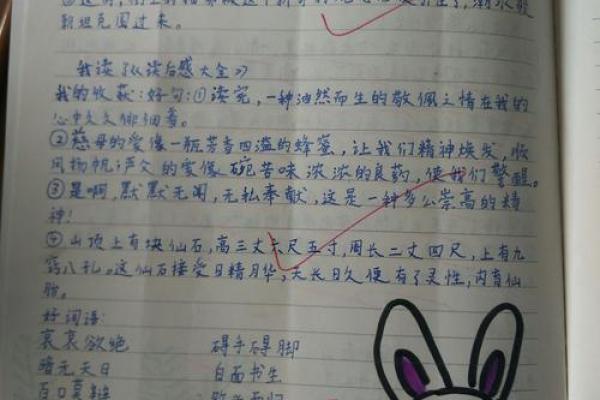 朝坦克围过来。
我读《读后感大全》
我的收获:好句:①读完,一种油然而生的敬佩之情在我的
心中久久徘徊着。
②慈母的爱像一瓶芳香四溢的蜂蜜,让我们精神焕发,顺
风扬帆;严父的爱像一碗苦味浓浓的良药,使我们警醒。
③是啊,默默无闻,无私奉献,这是一种多么崇高的精
神!
④山顶上有块仙石,高三丈六尺五寸,周长二丈四尺,上有九
窍八孔。这仙石接受日精月华,天长日久便有了灵性,内育仙
胎。
好词语:
哀哀欲绝 碍手碍脚
暗无天日 白面书生
百口莫辩